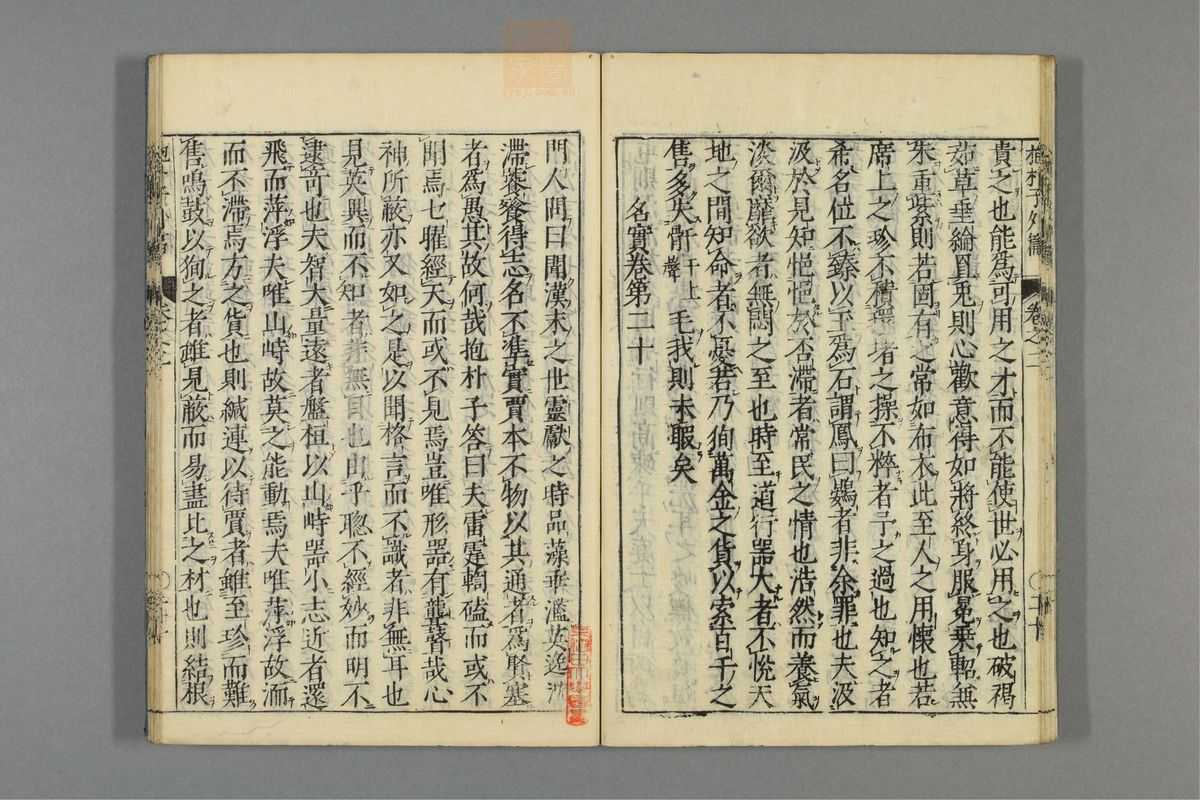 抱朴子外篇 卷之二
貴之也能爲可用之才而不能使世必用之也被褐
茹草垂綸罝兎則心歡意得如將終身服冕乗軺兼
朱重紫則若固有之常如布衣此至人之用懷也若
席上之珍不積環堵之操不粹者予之過也知之者
希名位不臻以至爲石謂鳳曰鷃者非余罪也夫汲
汲於見知悒悒於否滯者常民之情也浩然而養氣
淡爾靡欲者無悶之至也時至道行器大者不恱天
地之間知命者不憂若乃徇萬金之貨以索百千之
售多失骭干上聲毛我則未暇矣
名實卷第二十
門人問曰聞漢末之世靈獻之時品藻乖濫英逸
滯饕餮得志名不準實賈本不物以其通者爲賢塞
者爲愚其故何哉抱朴子答曰夫雷霆輷磕而或不
聞焉七曜經天而或不見焉豈唯形器有聾瞽哉心
神所蔽亦又如之是以聞格言而不識者非無耳也
見英異而不知者非無目也由乎聦不經妙而明不
逮竒也夫智大量遠者盤桓以山峙器小志近者還
飛而萍浮夫唯山峙故莫之能動焉夫唯萍浮故
而不滯焉方之貨也則緘連以待賈者雖至珍而難
售鳴鼓以狥之者雖見蔽而易盡比之材也則結根